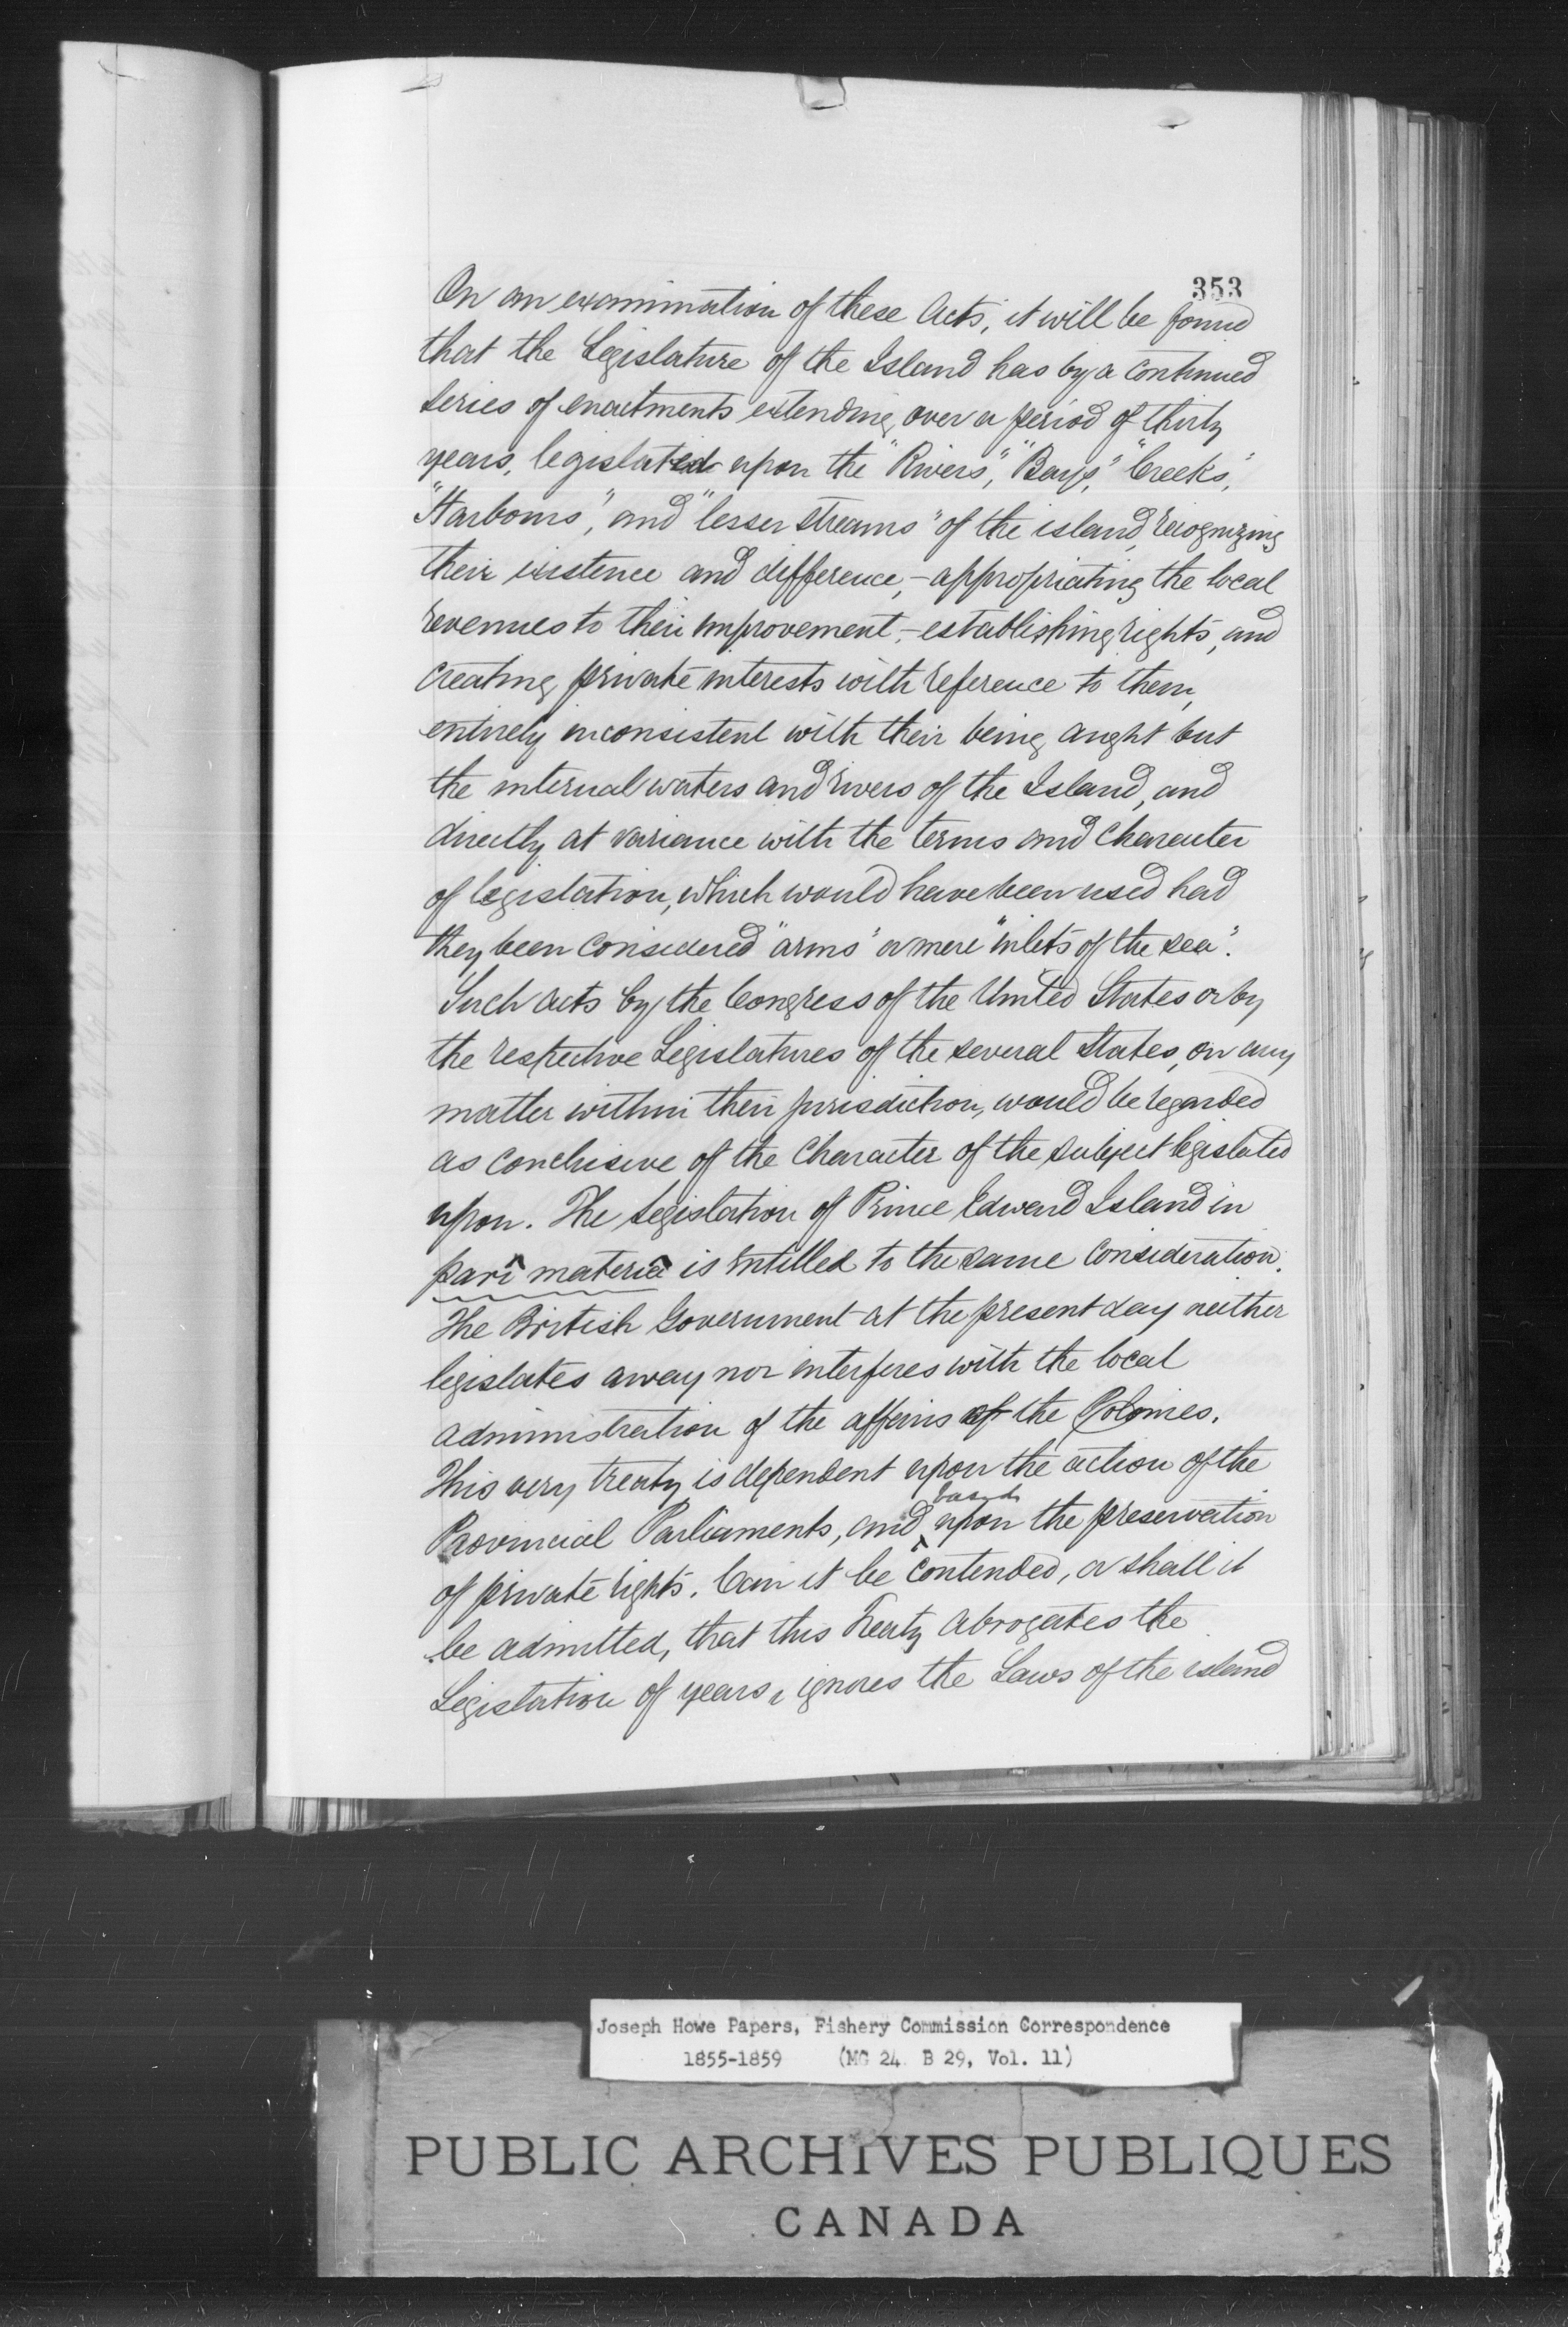 353
On an examination of these Acts, it will be found
that the Legislature of the Island has by a continued
series of enactments extending over a period of thirty
years, legislated upon the "Rivers", "Bays", "Creeks",
"Harbours", and "lesser streams" of the island, recognizing
their existence and difference, - appropriating the local
revenues to their improvement, - establishing rights, and
creating private interests with reference to them,
entirely inconsistent with their being aught but
the internal waters and rivers of the Island, and
directly at variance with the terms and character
of legislation, which would have been used had
they been considered "arms" or mere "inlets of the sea".
Such acts by the Congress of the United States or by
the respective Legislatures of the several States, on any
matter within their jurisdiction, would be regarded
as conclusive of the character of the subject legislated
upon. The legislation of Prince Edward Island in
parî materiâ is entitled to the same consideration.
The British Government at the present day neither
legislates away nor interferes with the local
administration of the affairs of the Colonies.
This very treaty is dependent upon the action of the
Provincial Parliaments, and based upon the preservation
of private rights. Can it be contended, or shall it
be admitted, that this Treaty abrogates the
Legislation of years, ignores the Laws of the island
Joseph Howe Papers, Fishery Commission Correspondence
1855-1859 (MG 24 B 29, Vol. 11)
PUBLIC ARCHIVES PUBLIQUES
CANADA